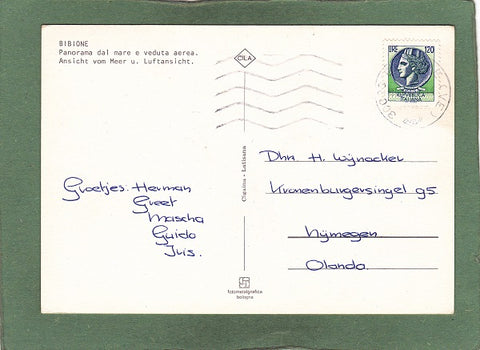 BIBIONE
Panorama dal mare e veduta aerea.
Ansicht vom Meer u. Luftansicht.
CILA
LIRE 120
Cigaina - Latisana
Dhr. H. Wijnacker
Kronenburgersingel 95
Nijmegen
Olanda.
Groetjes: Herman
Greet
Mascha
Guido
Iris.
fotometalgrafica
bologna